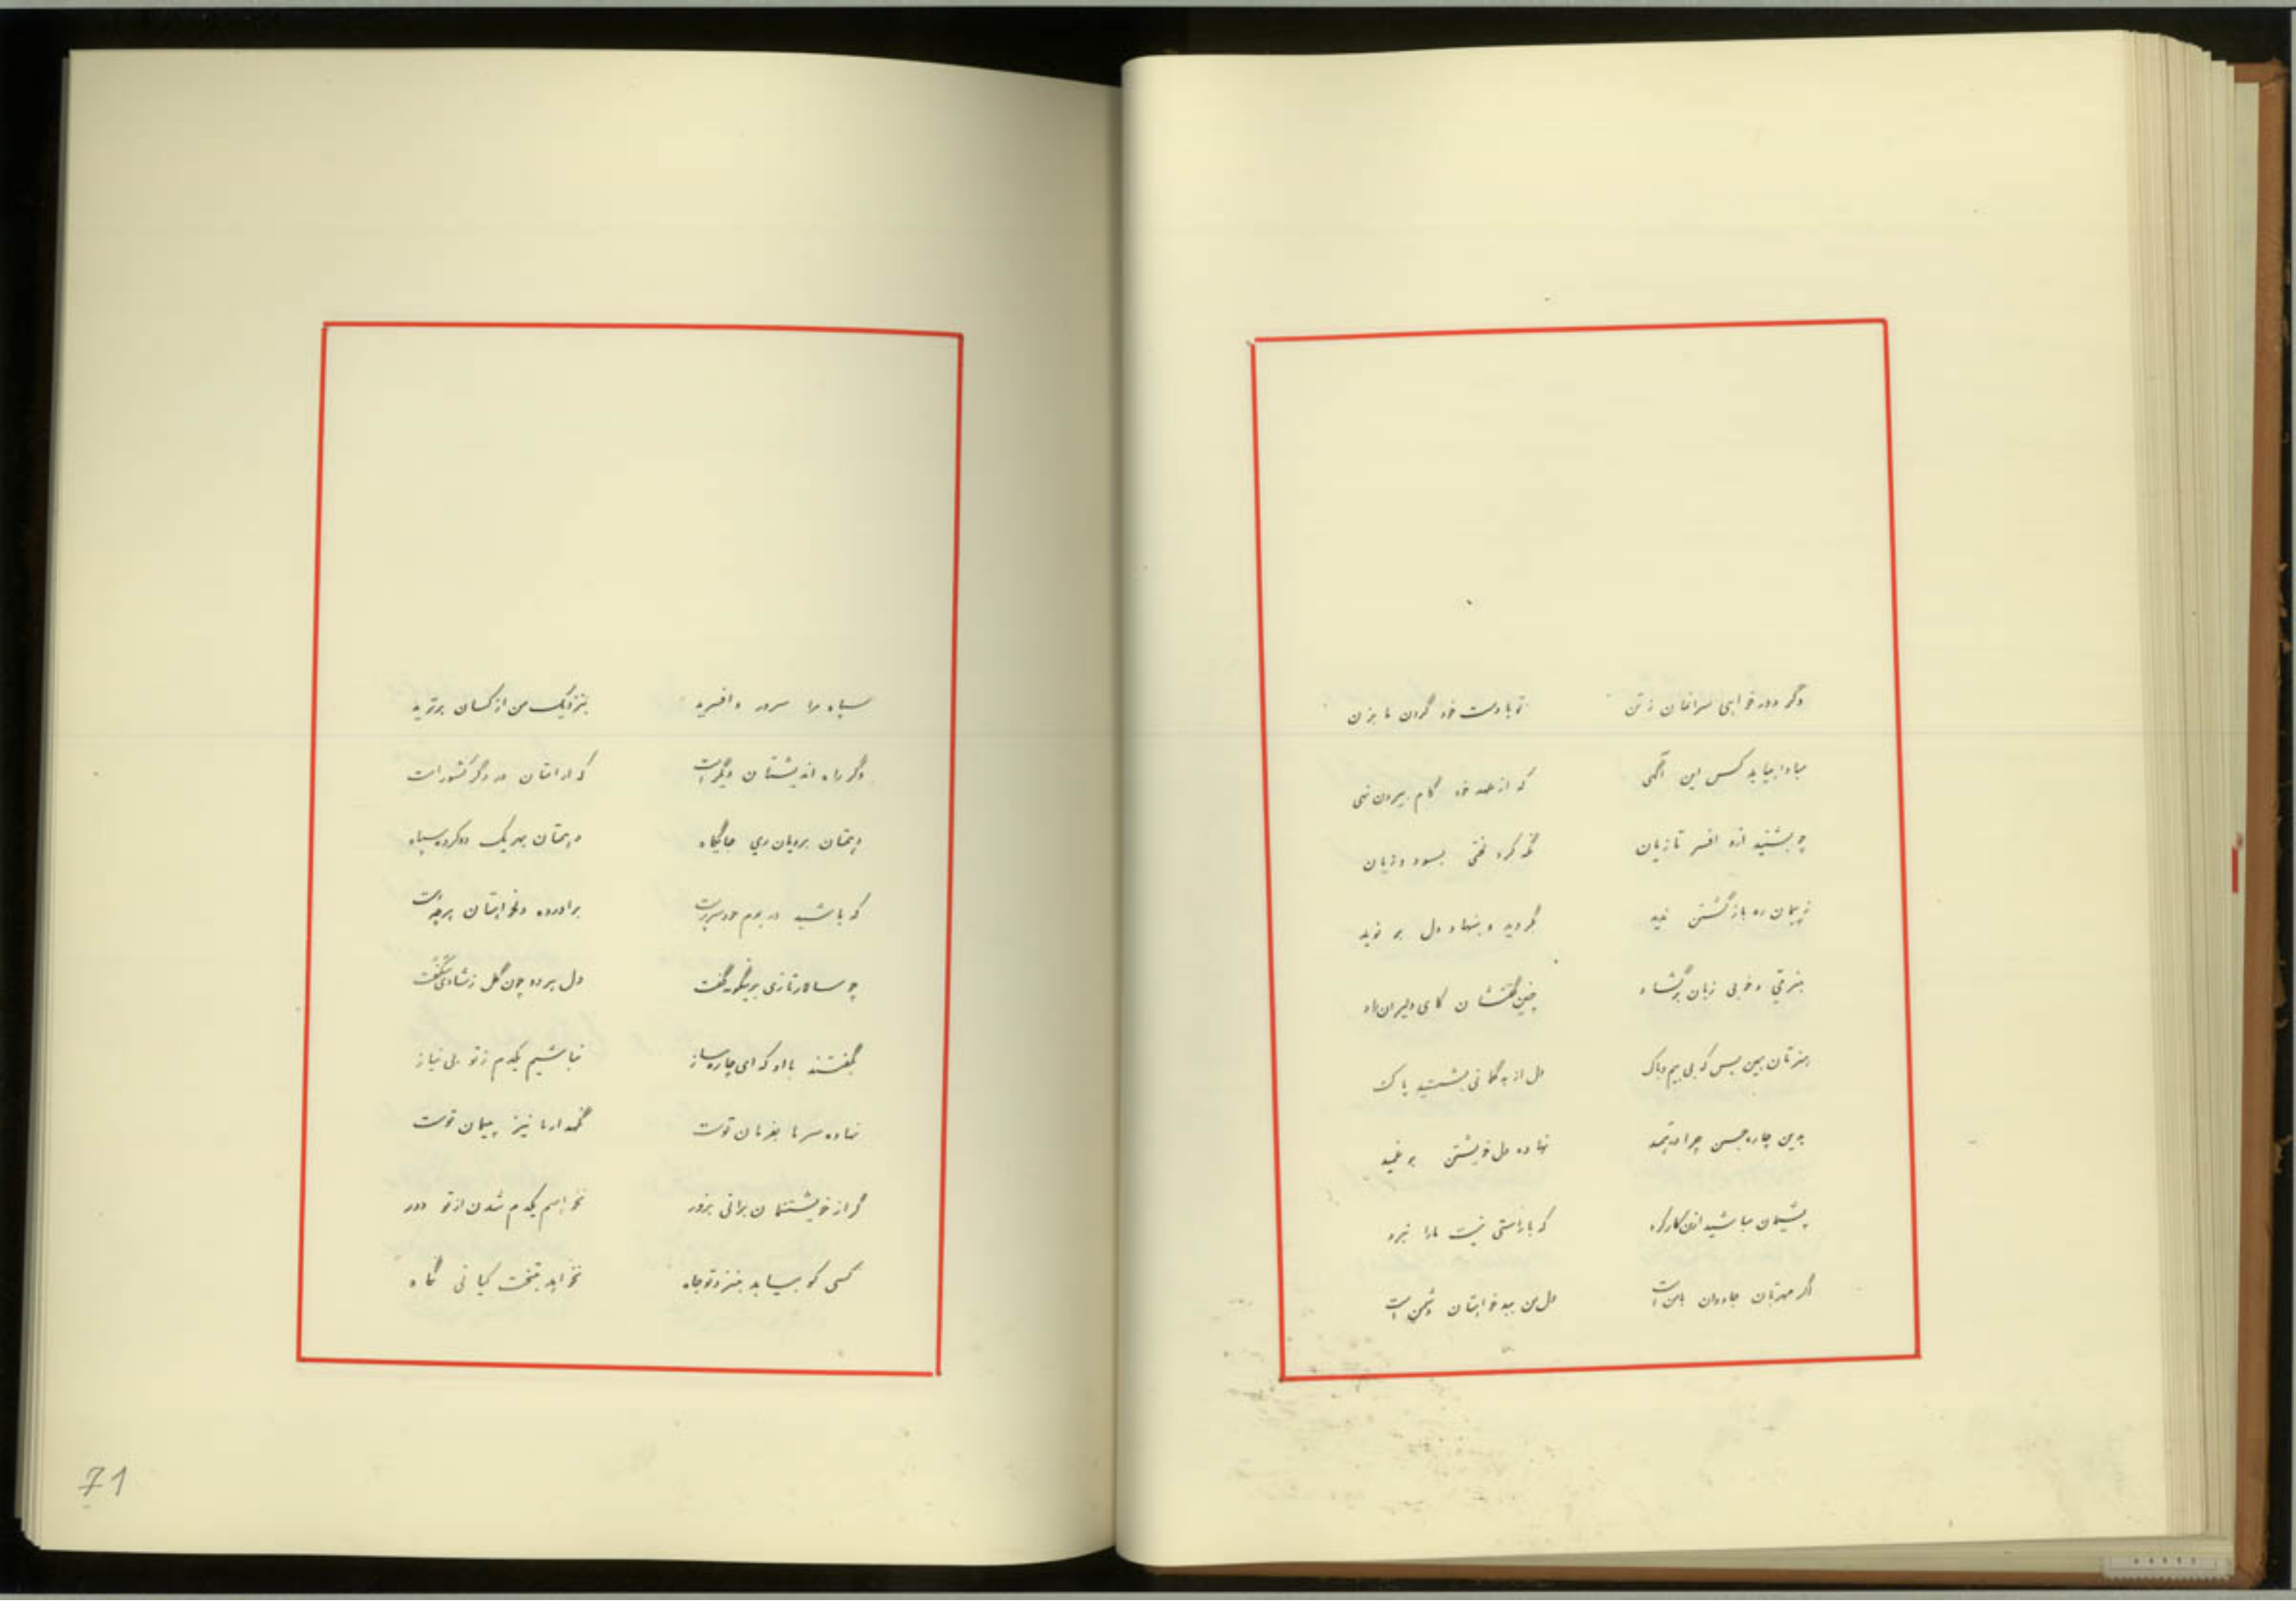 وگر دور خواهی سرانمان ز تن تو با دست خود گردن ما بزن
مبادا بیابد کس این آگهی که از عهد خود گام بیرون نهی
چو بشنید ازو افسر تازیان نگه کرد لختی بسود و زیان
ز پیمان ره بازگشتن ندید گردید و بنهاد دل بر نوید
بنرمی و خوبی زبان برگشاد چنین گفتشان کای دلیران راد
هنرتان همین بس که بی بیم و باک دل از بدگمانی بشستید پاک
بدین چاره جستن چرا درتمید نهاده دل خویشتن بر غمید
پشیمان مباشید ازین کارکرد که با راستی نیست ما را نبرد
اگر مهرتان جاودان با من است دل من ببدخواهتان دشمن است
سپاه مرا سرور و افسرید بنزدیک من از کسان برترید
وگر راه اندیشتان دیگر است که آرامتان در دگر کشور است
دهمتان بروبان ری جایگاه دهمتان بهر یک دو کرده سپاه
که باشید در بوم خود سرپرست برآورده دلخواهتان هرچه هست
چو سالار تازی برینگونه گفت دل هر دو چون گل ز شادی شکفت
بگفتند با او که ای چاره ساز نباشیم یکدم ز تو بی نیاز
نهاده سر ما بفرمان توست نگهدار ما نیز پیمان توست
گر از خویشتنمان برانی بزور نخواهیم یکدم شدن از تو دور
کسی کو بیابد بنزد تو جاه نخواهد بتخت کیانی نگاه
71